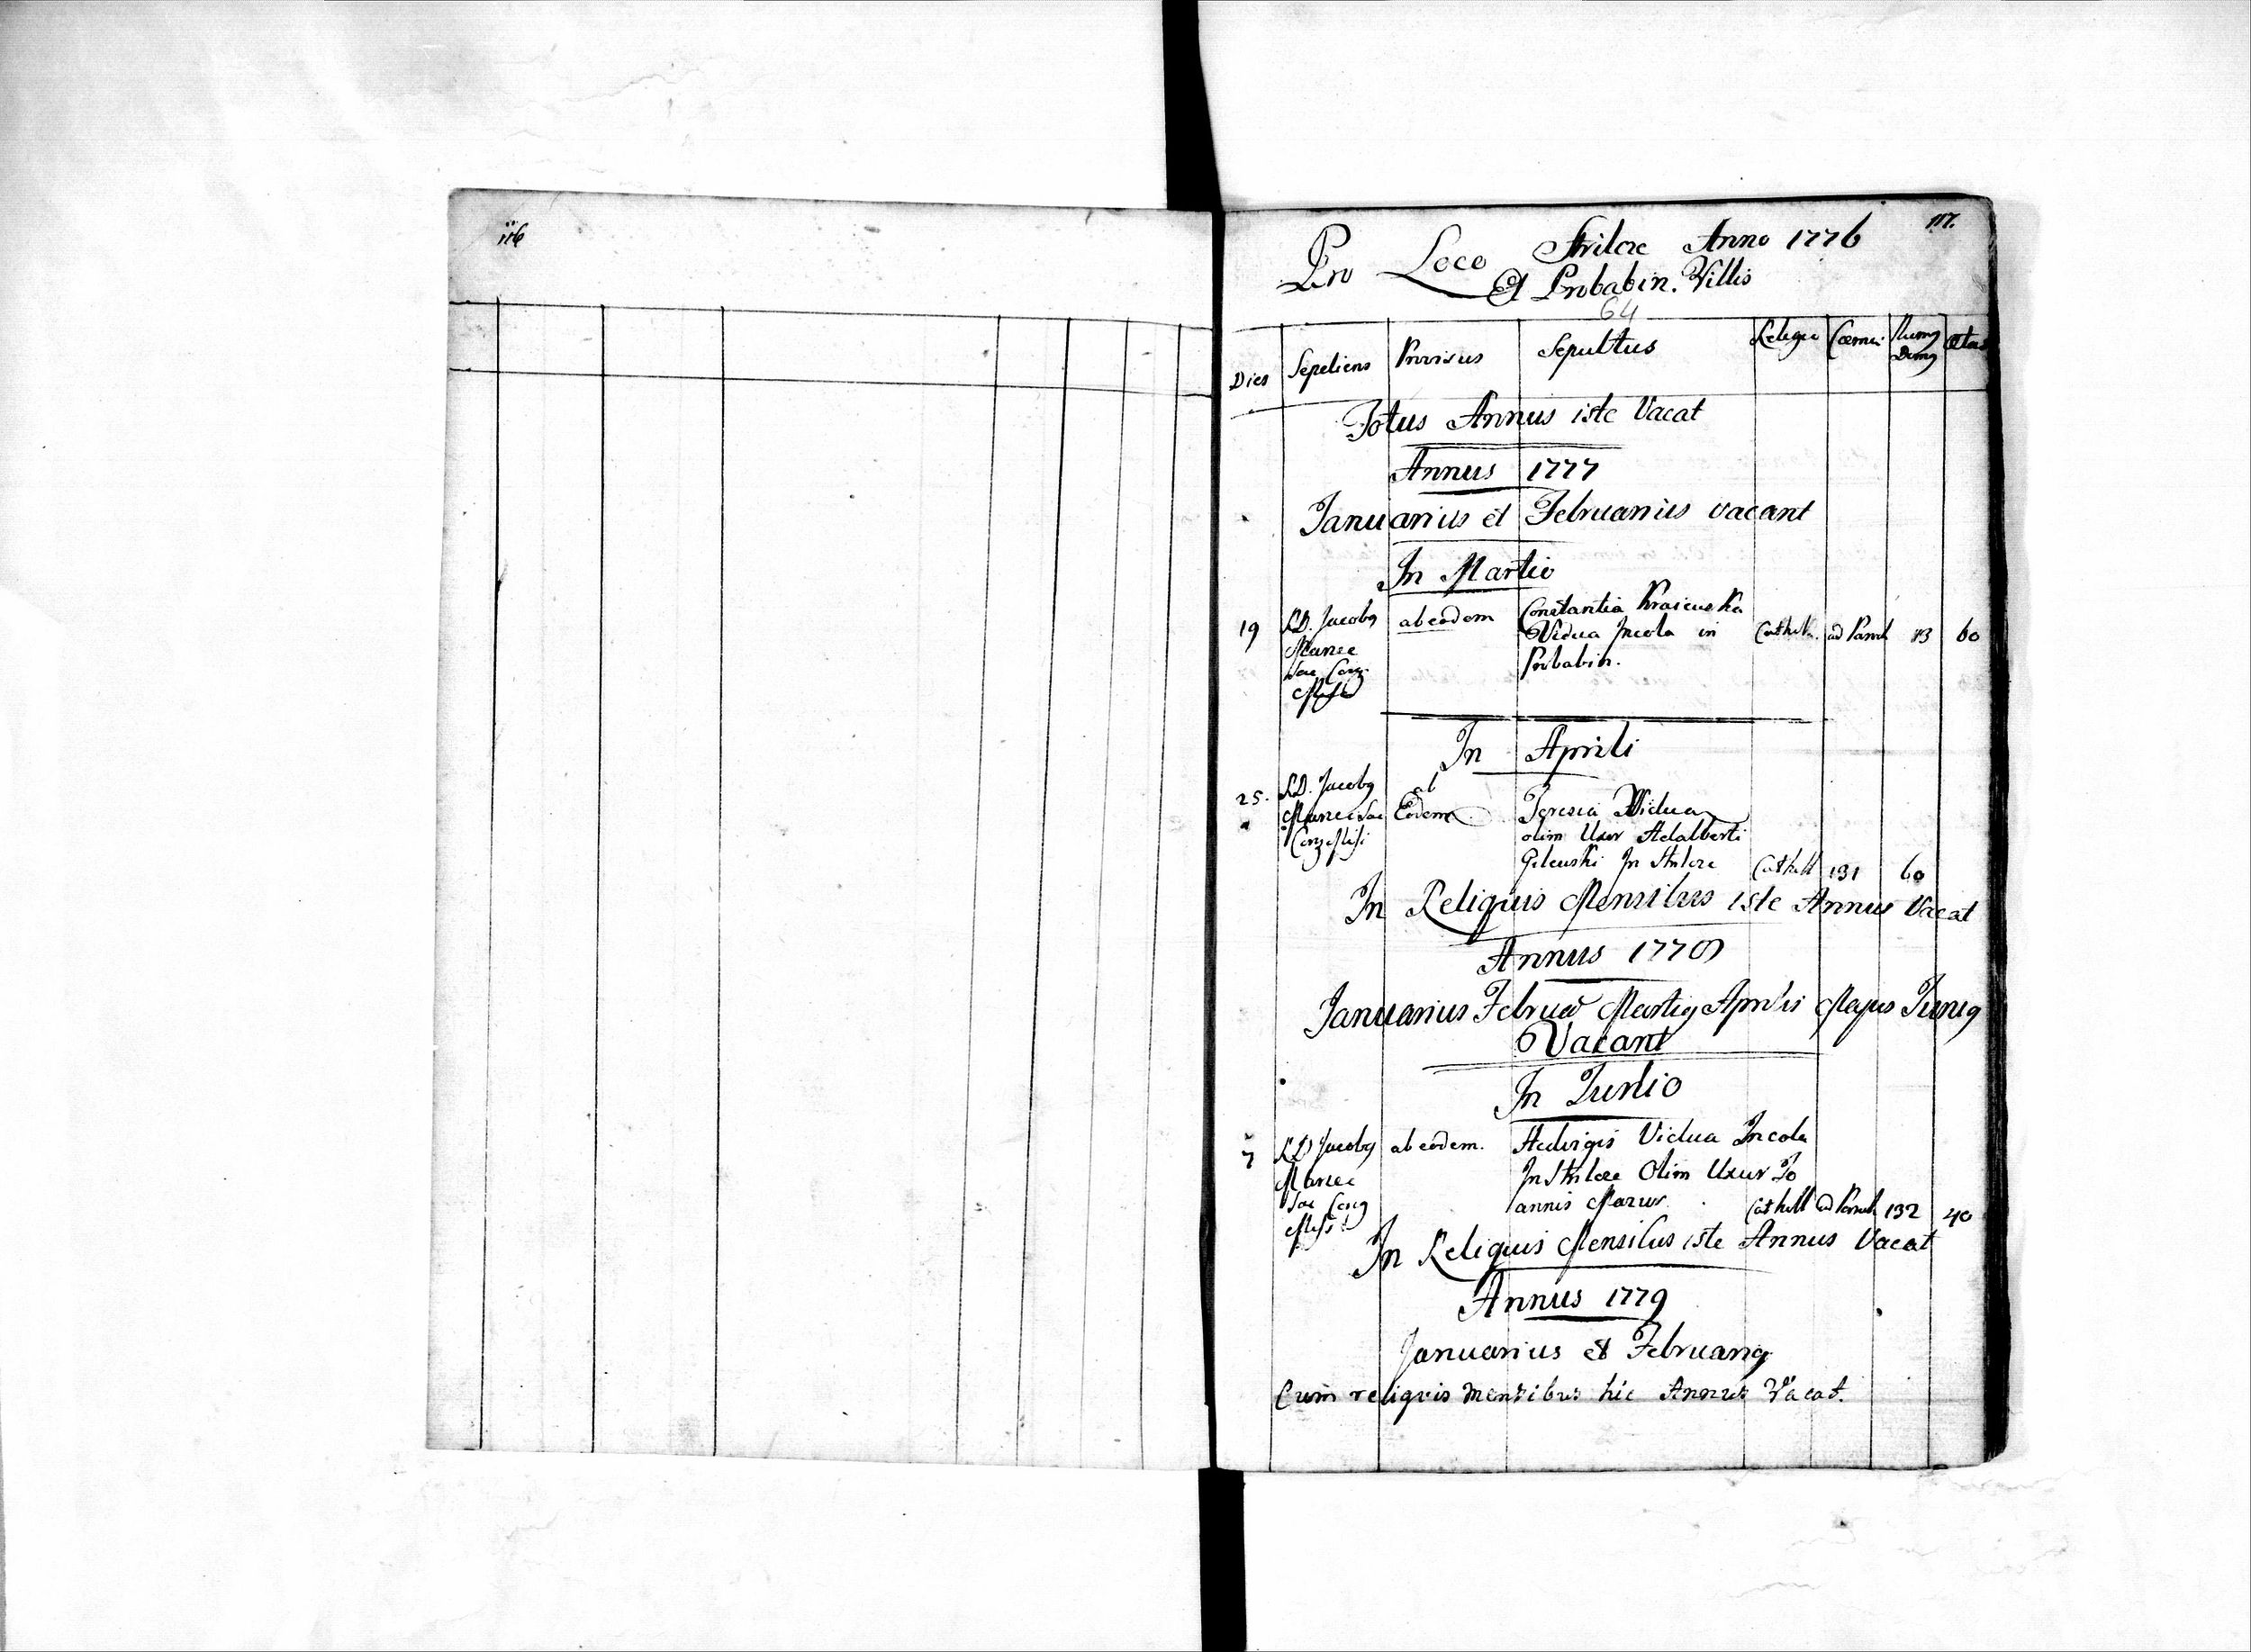 116
117.
Pro Loco Strilcze Anno 1776
Et Probabin. Villis
64
Dies Sepeliens Provisus Sepultus Religio Cæmei Numg Domg Ætas
Totus Annus iste Vacat
Annus 1777
Januarius et Februarius vacant
In Martio
19 R.D. Jacobg ab eodem Constantia
Vidua Incola in Cathol. ad Paroch 13 60
Probabin.
In Aprili
25. R.D. Jacobg ab
Eodem Teresia Vidua
olim Uxor Adalberti
Gilewski In Cathol 131 60
In Reliquis Mensibus iste Annus Vacat
Annus 1778
Januarius Februar Martig Aprilis Majus Junig
Vacant
In Junio
7 R.D Jacobg ab eodem. Hedvigis Vidua Incola
In Olim Uxor Jo
annis Mazur Cathol ad Paroch 132 40
In Reliquis Mensibus iste Annus Vacat
Annus 1779
Januarius et Februarig
Cum reliqvis mensibus hic Annus Vacat.